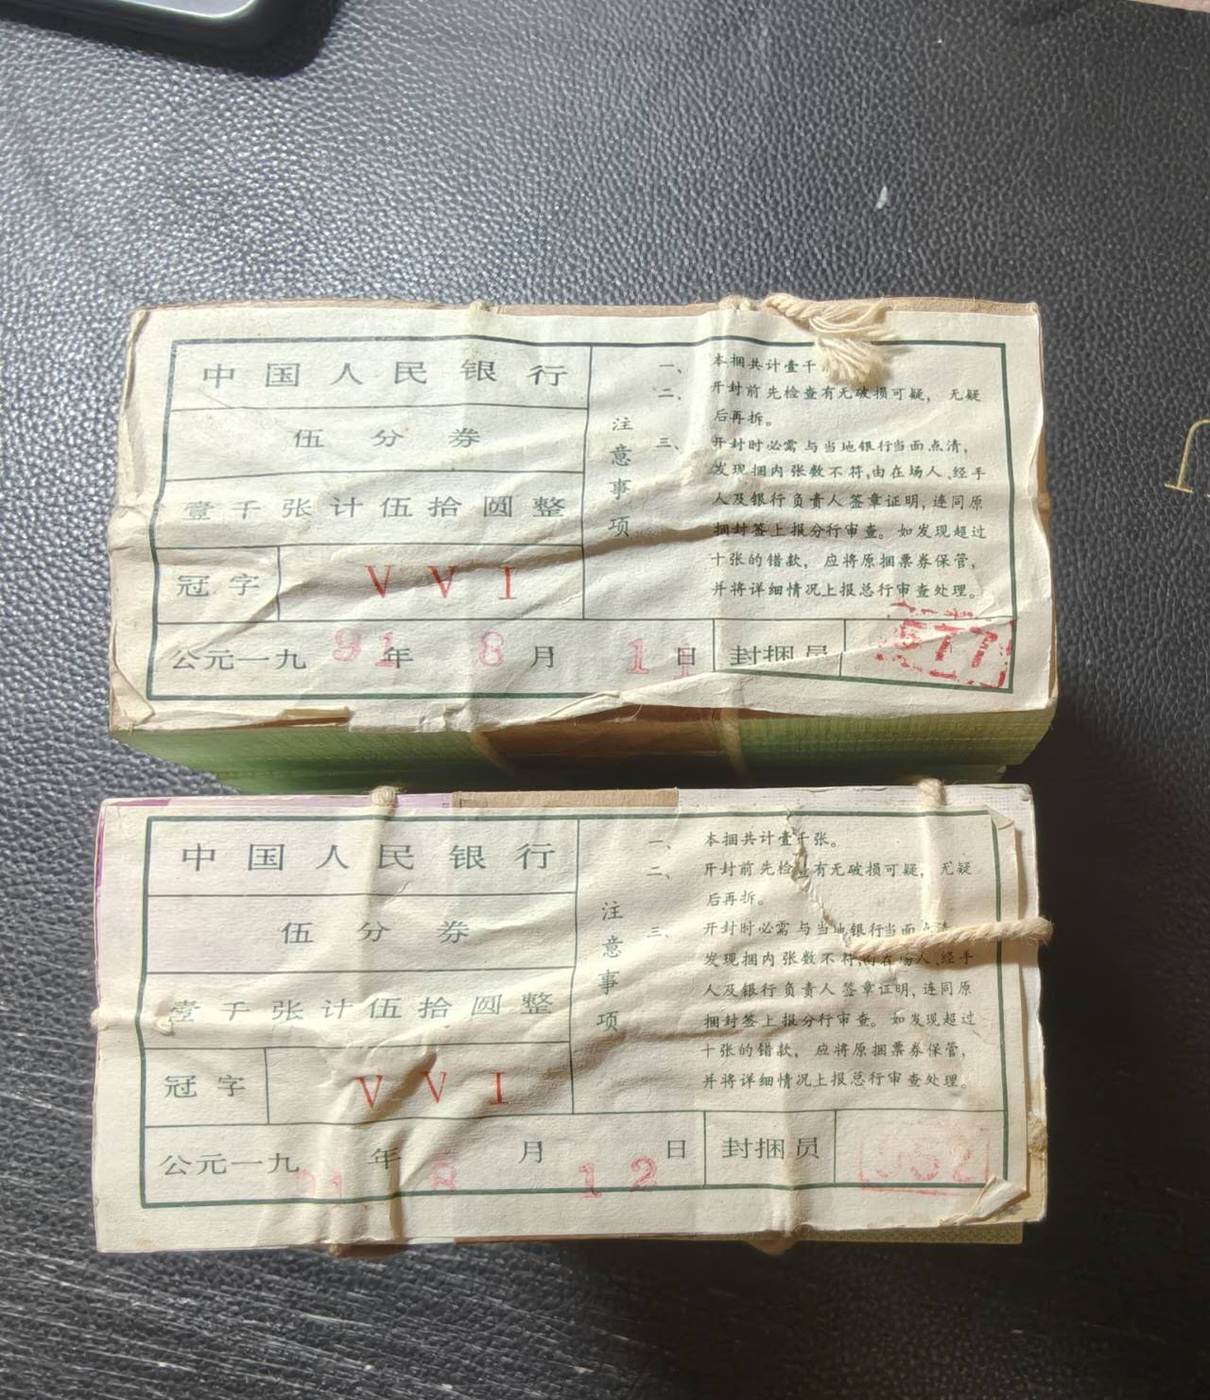 中国人民银行
伍分券
壹千张计伍拾圆整
冠字 VVI
公元一九91年8月11日 封捆员 577
注意事项
一、本捆共计壹千
二、开封前先检查有无破损可疑，无疑
后再拆。
三、开封时必需与当地银行当面点清，
发现捆内张数不符，由在场人、经手
人及银行负责人签章证明，连同原
捆封签上报分行审查。如发现超过
十张的错款，应将原捆票券保管，
并将详细情况上报总行审查处理。
中国人民银行
伍分券
壹千张计伍拾圆整
冠字 VVI
公元一九91年8月12日 封捆员
注意事项
一、本捆共计壹千张。
二、开封前先检查有无破损可疑，无疑
后再拆。
三、开封时必需与当地银行当面点清
发现捆内张数不符，由在场人、经手
人及银行负责人签章证明，连同原
捆封签上报分行审查。如发现超过
十张的错款，应将原捆票券保管，
并将详细情况上报总行审查处理。